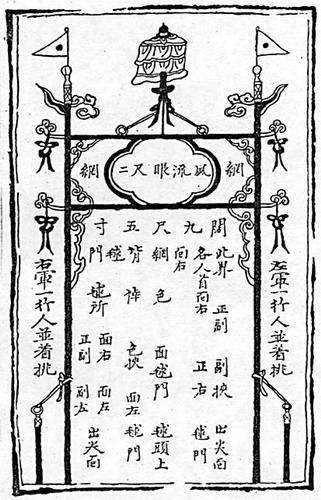 網
風流眼尺二
網
左軍一行人並着挑
闊 此界 正副 副挾 出尖面
各人首面右 正右 毬門
九 面右
尺 網 色 面毬門 毬頭上
五 背 作 色挾 面左 毬門
毬
寸 門 毬所 面右 面左 出尖面
正副 副左
右軍一行人並着挑